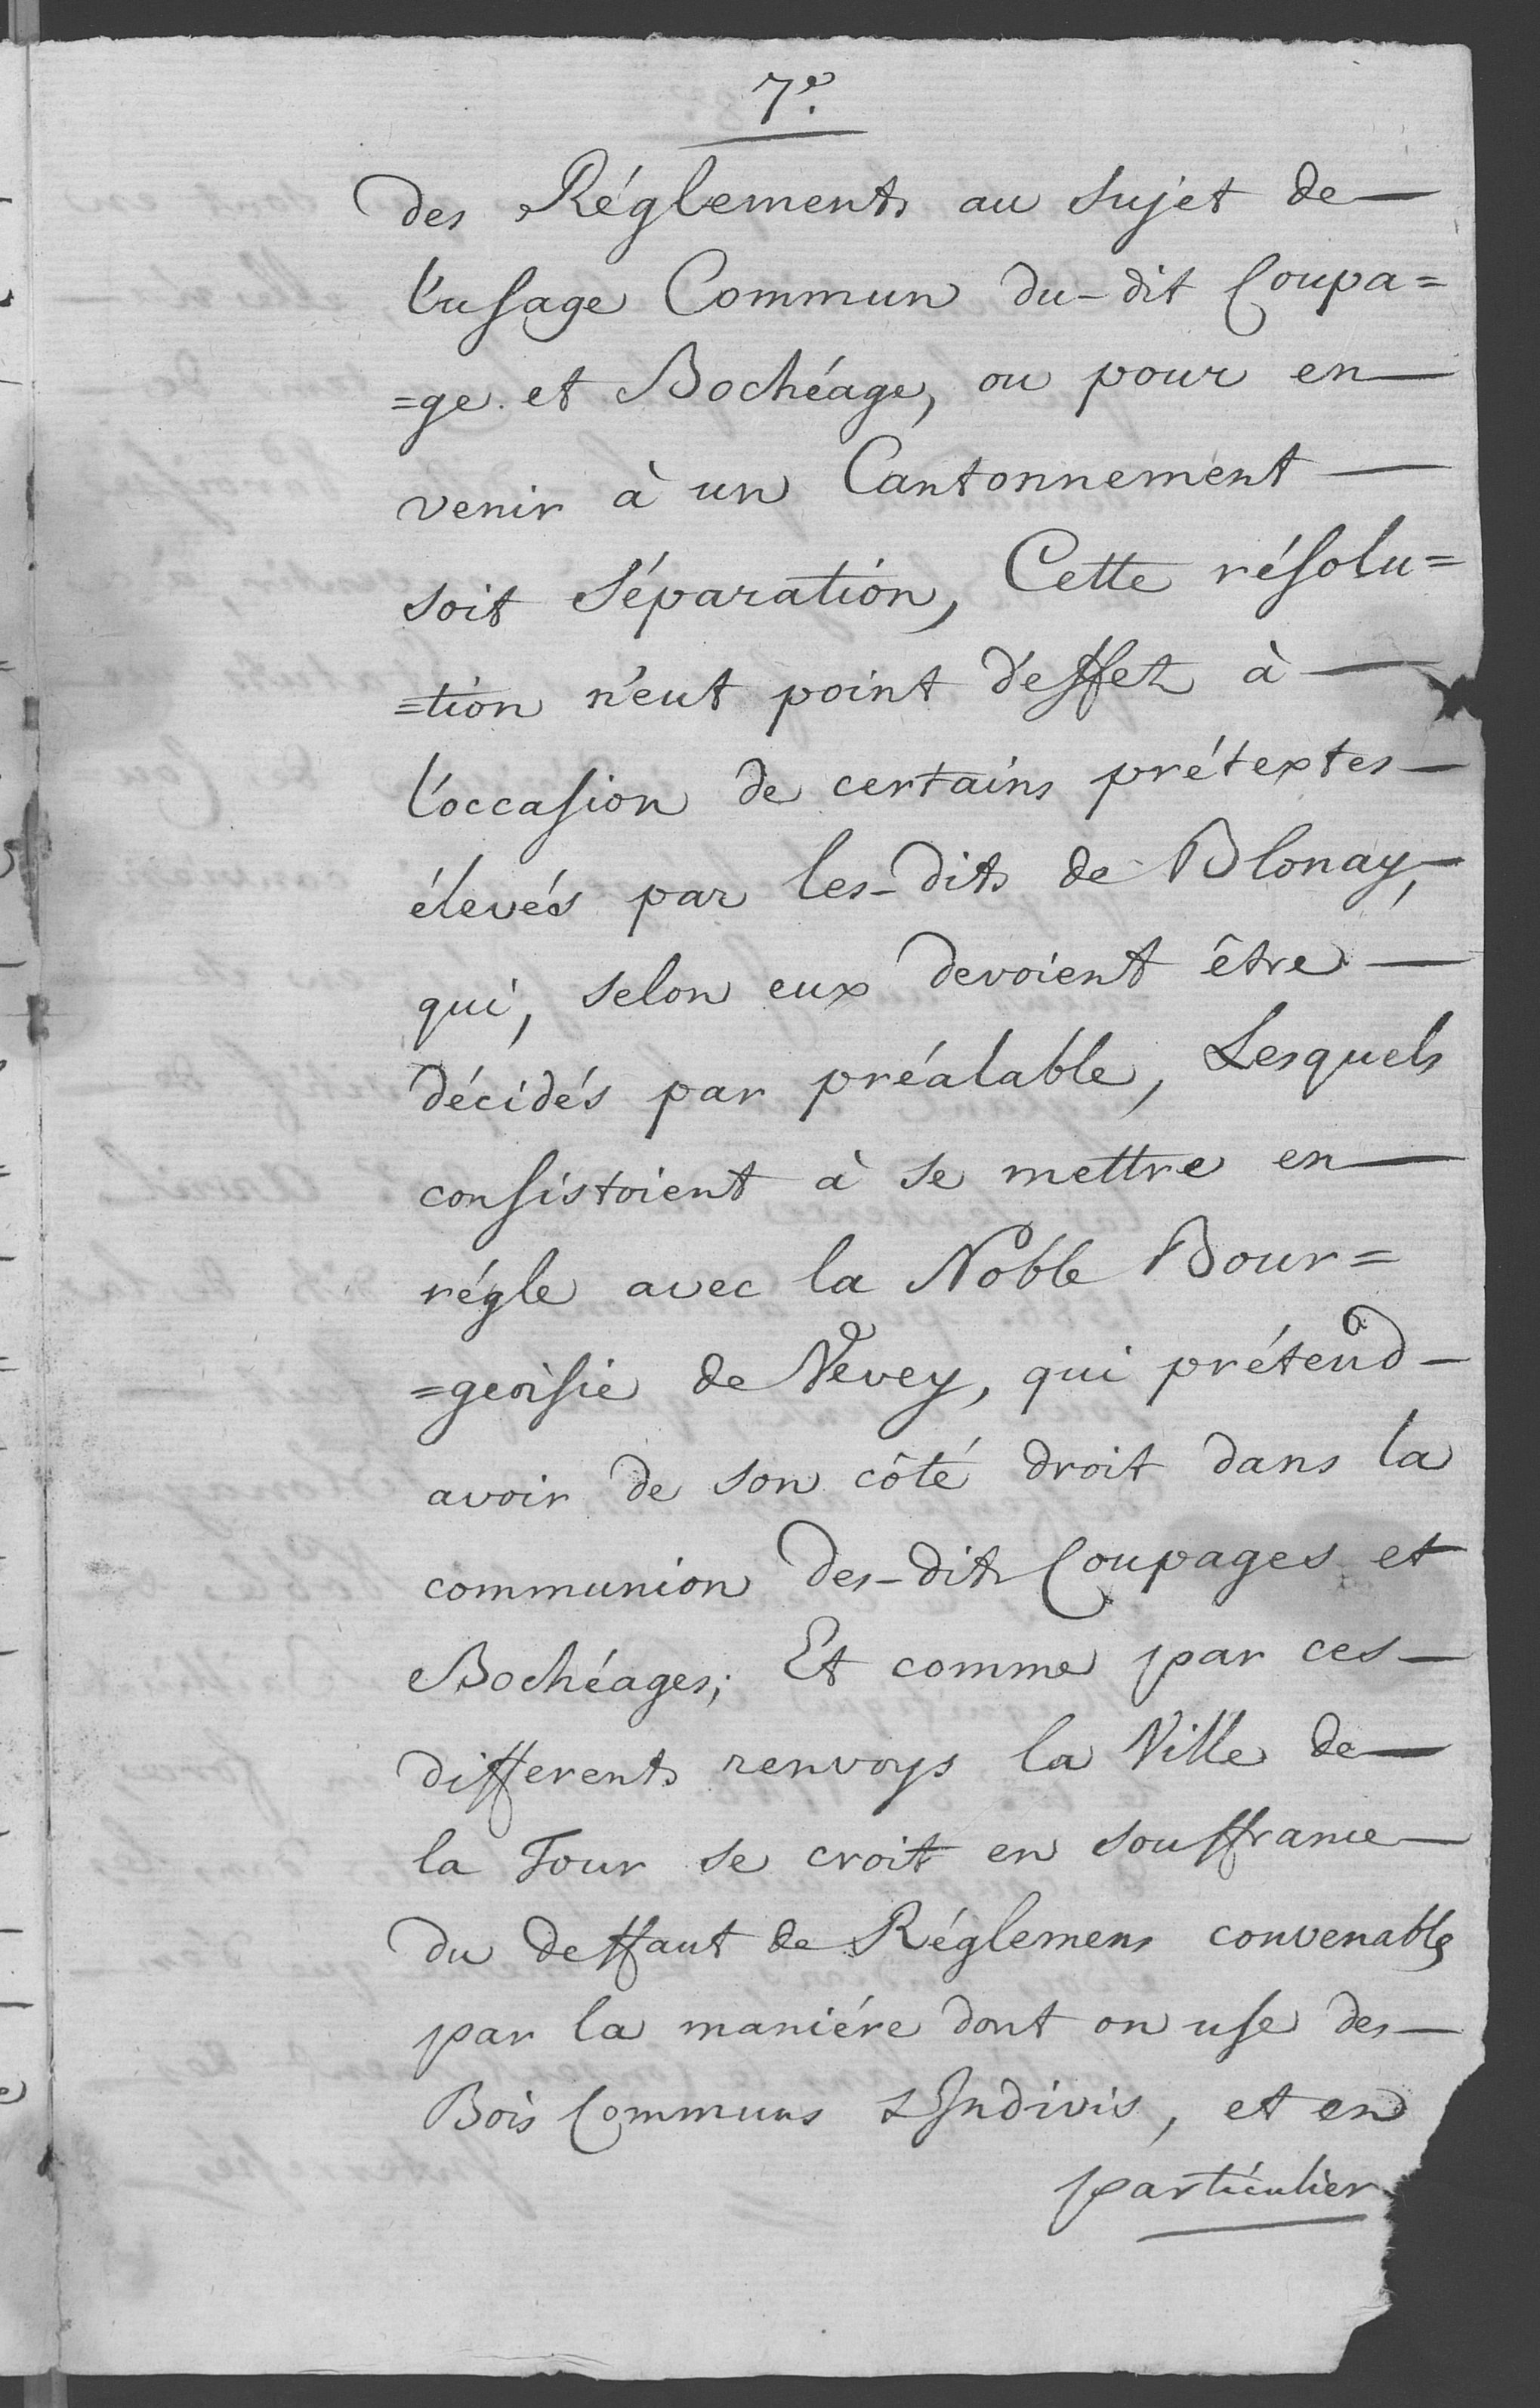 7e.
des Réglements au sujet de —
l'usage Commun du-dit Coupa=
=ge et Bochéage, ou pour en —
venir à un Cantonnement —
soit Séparation, Cette résolu=
=tion n'eut point d'effet à —
l'occasion de certains prétextes —
élevés par les-dits de Blonay, —
qui, selon eux devoient être —
décidés par préalable, Lesquels
consistoient à se mettre en —
régle avec la Noble Bour=
=geoisie de Vevey, qui prétend —
avoir de son côté droit dans la
communion des-dits Coupages et
Bochéages; Et comme par ces —
differents renvoys la Ville de —
la Tour se croit en souffrance —
du deffaut de Réglemens convenables
par la maniére dont on use des —
Bois Communs & Indivis, et en
particulier